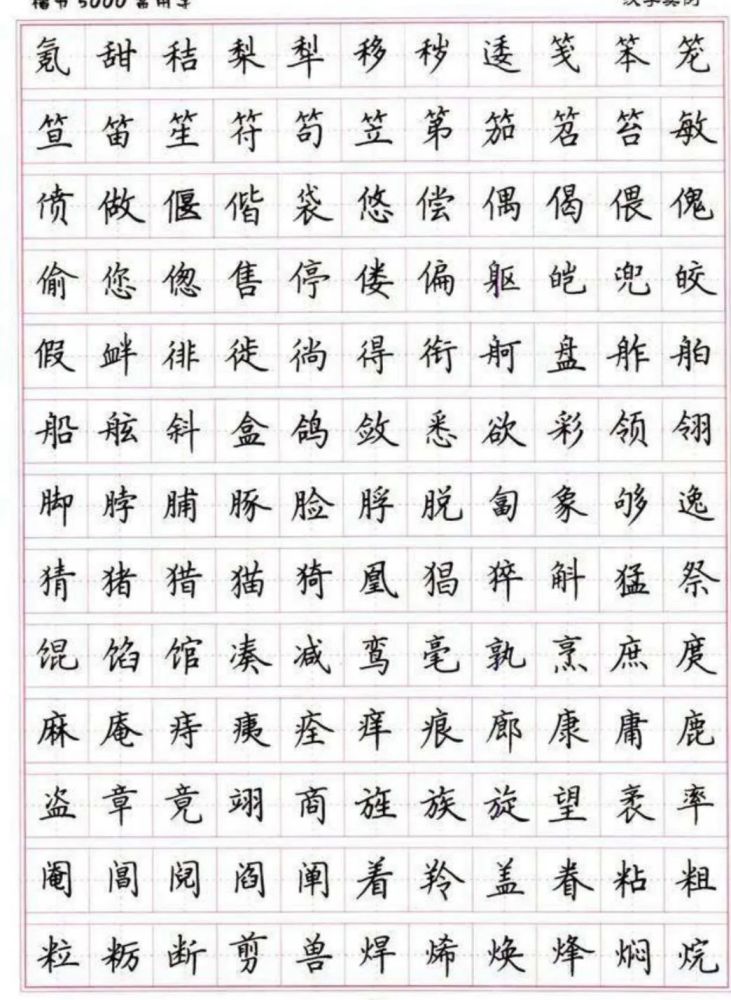 楷书5000常用字
氪甜秸梨犁移秽逶笺笨笼
笪笛笙符笱笠第笳笤笞敏
偾做偃偕袋悠偿偶偈偎傀
偷您偬售停偻偏躯皑兜皎
假衅徘徙徜得衔舸盘舴舶
船舷斜盒鸽敛悉欲彩领翎
脚脖脯豚脸脬脱匐象够逸
猜猪猎猫猗凰猖猝斛猛祭
馄馅馆凑减鸾毫孰烹庶庹
麻庵痔痍痊痒痕廊康庸鹿
盗章竟翊商旌族旋望袤率
阉阊阋阎阐着羚盖眷粘粗
粒粝断剪兽焊烯焕烽焖烷